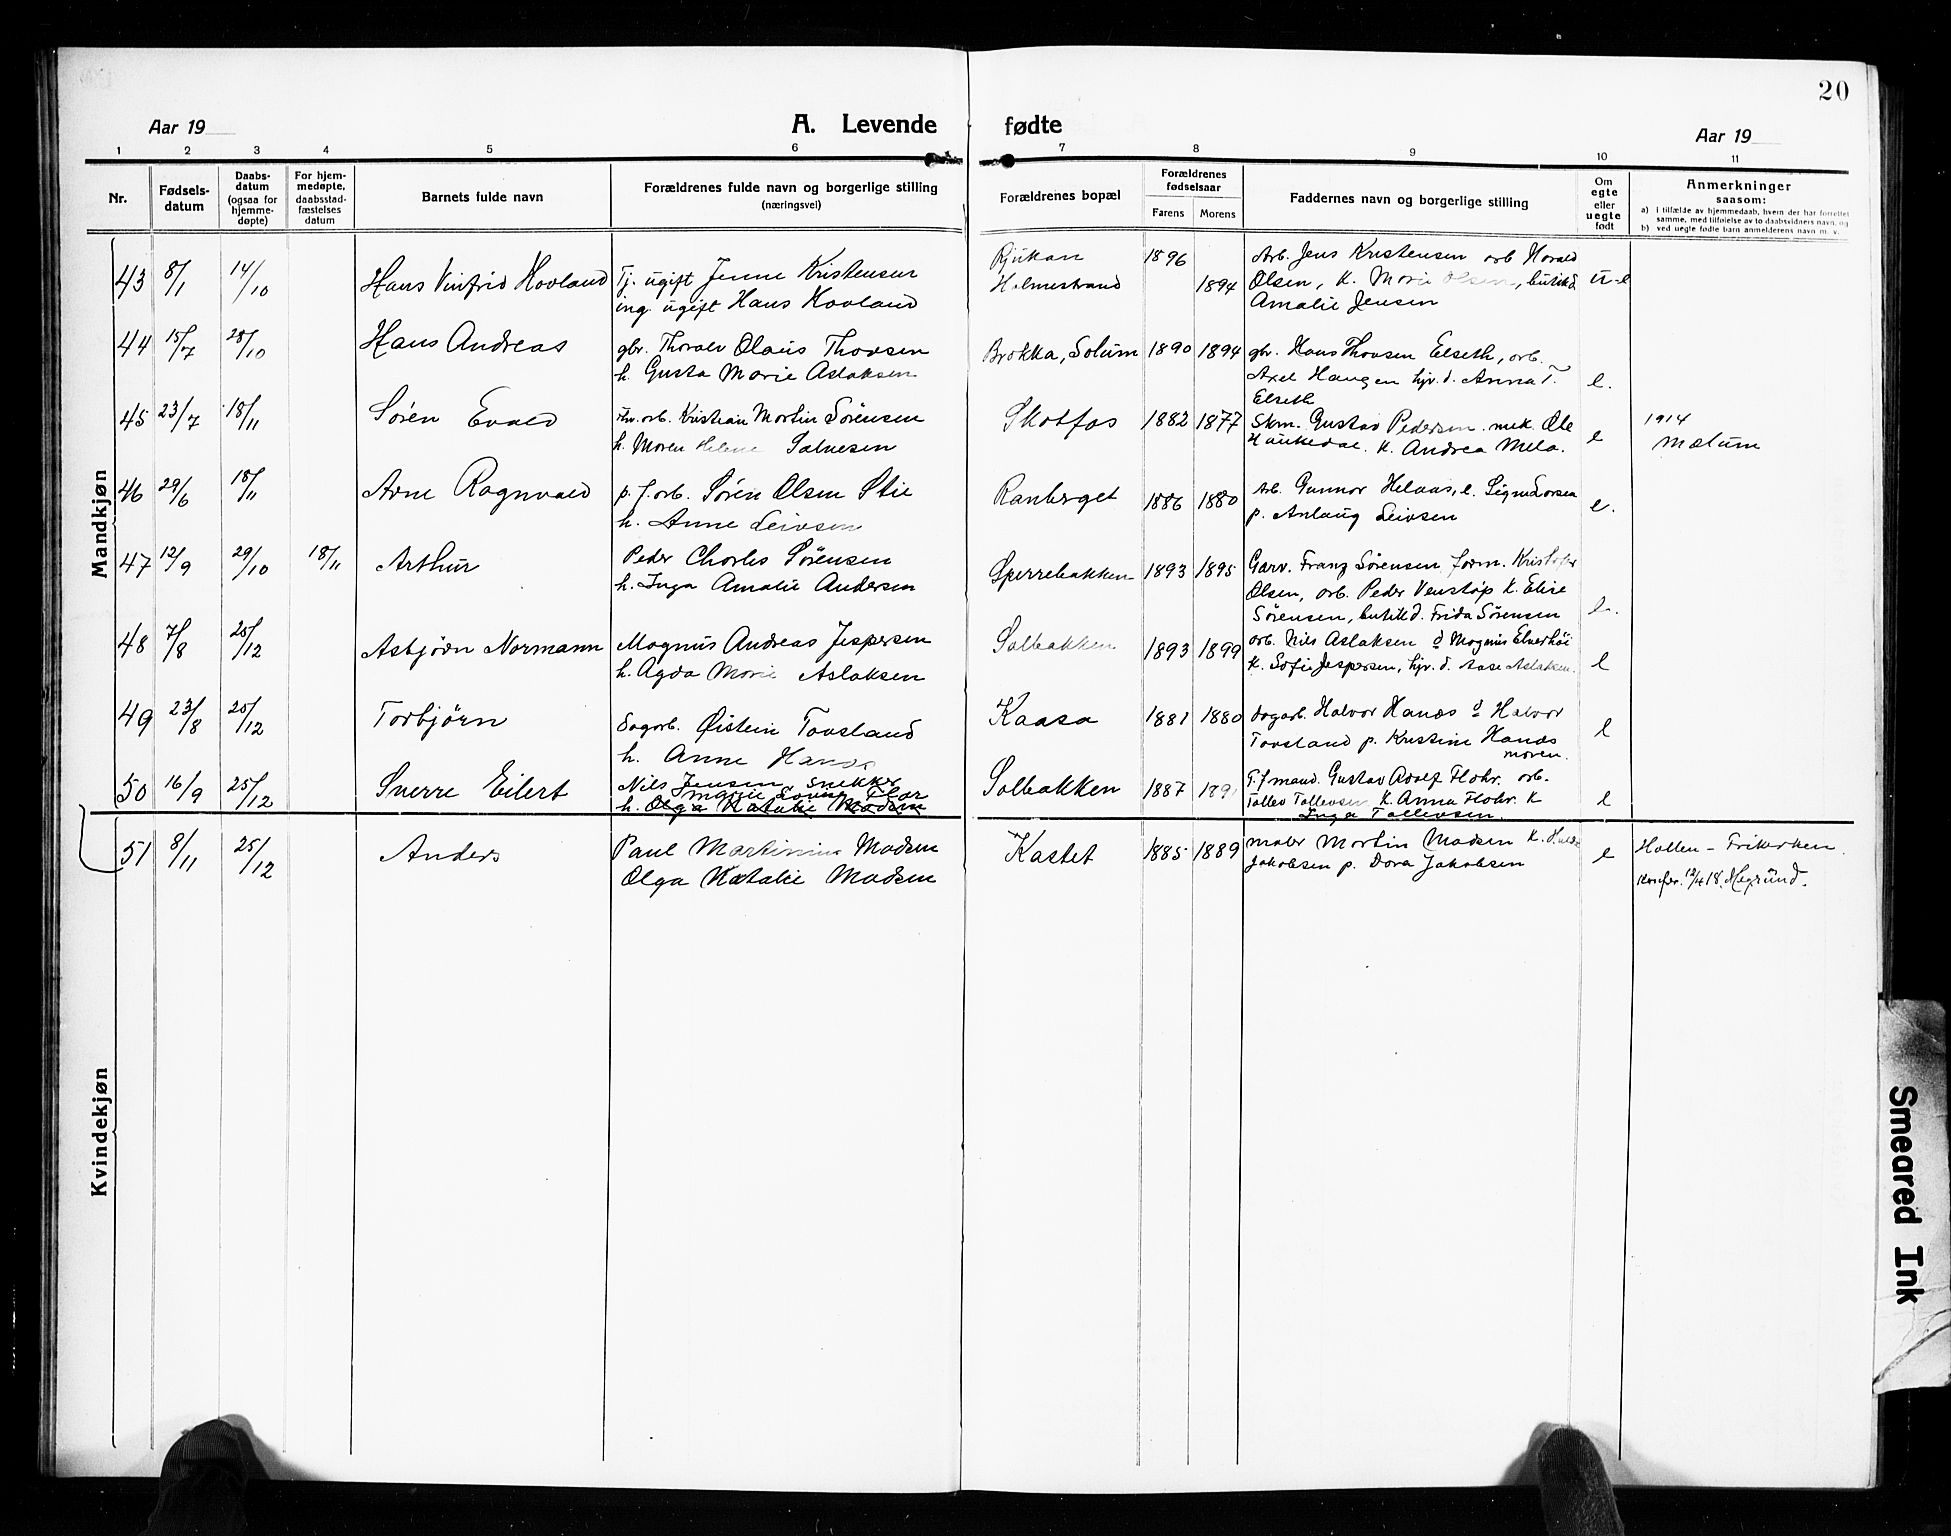 20
Aar 19
A. Levende fødte
Aar 19
1 2 3 4 5 6 7 8 9 10 11
Nr.
Fødsels-
datum
Daabs-
datum
(ogsaa for
hjemme-
døpte)
For hjem-
medøpte,
daabsstad-
fæstelses
datum
Barnets fulde navn
Forældrenes fulde navn og borgerlige stilling
(næringsvei)
Forældrenes bopæl
Forældrenes
fødselsaar
Farens Morens
Faddernes navn og borgerlige stilling
Om
egte
eller
uegte
født
Anmerkninger
saasom:
a) i tilfælde av hjemmedaab, hvem der har forrettet
samme, med tilføielse av to daabsvidners navn, og
b) ved uegte fødte barn anmelderens navn m. v.
Mandkjøn
43 8/1 14/10 Hans Vinfrid Hovland
Tj. ugift Jenne Kristensen
ing. ugift Hans Hovland
Rjukan 1896
Holmestrand 1894
Arb. Jens Kristensen arb Harald
Olsen, K. Marie Olsen, butikd
Amalie Jensen
U-e
44 15/7 28/10 Hans Andreas
gbr. Thoralv Olaus Thovsen
h. Gusta Marie Aslaksen
Brokka, Solum 1890 1894
gbr. Hans Thovsen Elseth, arb.
Axel Haugen hjv. d. Anna T.
Elseth
e.
45 23/7 18/11 Søren Evald
Thv. arb. Kristian Martin Sørensen
h. Maren Helene Salvesen
Skotfos 1882 1877
Skm. Gustav Pedersen. mek. Ole
Haukedal. K. Andrea Mela.
e
1914
Mælum
46 29/6 18/11 Arne Ragnvald
p. f. arb. Søren Olsen Stie
h. Anne Leivsen
Ranberget 1886 1880
Arb. Gunnar Helaas, e. Signe Larsen
p. Anlaug Leivsen
e.
47 12/9 29/10 18/11 Arthur
Peder Charles Sørensen
h. Inga Amalie Andersen
Sperrebakken 1893 1895
Garv. Franz Sørensen form. Kristofer
Olsen, arb. Peder Venstøp K. Elise
Sørensen, butikd. Frida Sørensen
e.
48 7/8 25/12 Asbjørn Normann
Magnus Andreas Jespersen
h. Agda Marie Aslaksen
Solbakken 1893 1899
arb. Nils Aslaksen d Magnus Elverhøi
K. Sofie Jespersen, hjv. d. Aase Aslaksen.
e
49 23/8 25/12 Torbjørn
Sagarb. Øistein Tovsland
h. Anne Hanås
Kaasa 1881 1880
sagarb. Halvor Hanås d Halvor
Tovsland p. Kristine Hanås
moren.
e
50 16/9 25/12 Sverre Eilert
Nils Jensen, Snekker
Marie Lovise Flor
h. Olga Natalie Madsen
Solbakken 1887
T. f mand. Gustav Adolf Flohr. arb.
Tollev Tollevsen, K. Anna Flohr. K
Inga Tollevsen.
e
51 8/11 25/12 Anders
Paul Martinius Madsen
Olga Natalie Madsen
Kastet 1885 1889
maler Martin Madsen K. Hulda
Jakobsen p. Dora Jakobsen
e
Hollen - Frikirken.
Konfer. 12/4 18.
Kvindekjøn
Smeared Ink